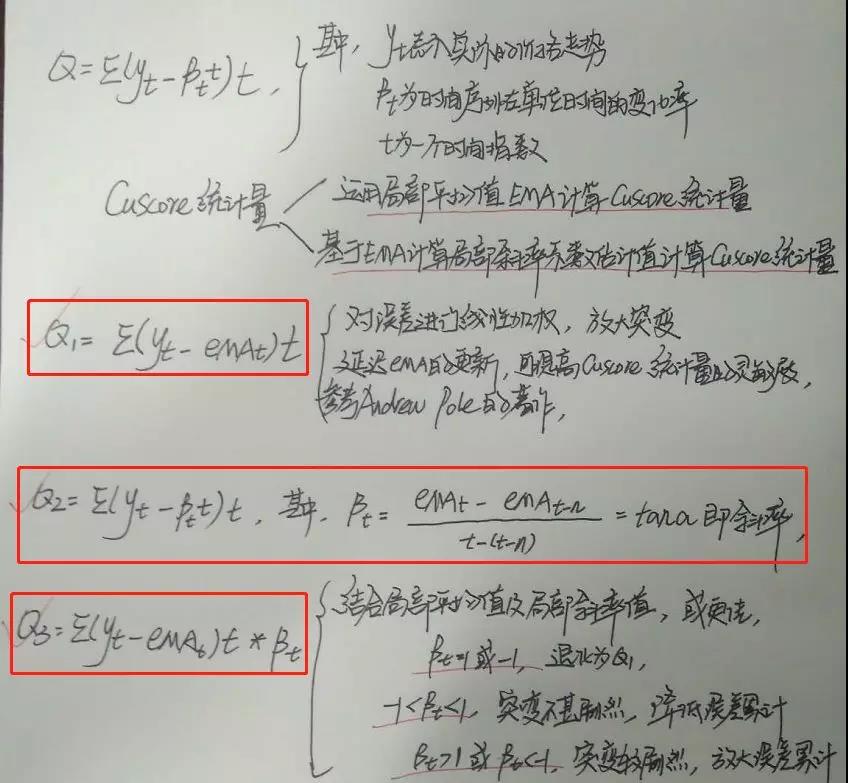 Q=Σ(yt-βtt)t, 其中, yt表示实际的价格走势
βt为时间序列在单位时间的变化率
t为一个时间指数
Cuscore统计量
运用局部平均值EMA计算Cuscore统计量
基于EMA计算局部斜率系数估计值计算Cuscore统计量
Q1=Σ(yt-emAt)t
对误差进行线性加权, 放大突变
延迟emA的更新, 可提高Cuscore统计量的灵敏度,
参考Andrew Pole的著作,
Q2=Σ(yt-βtt)t, 其中, βt=(emAt-emAt-n)/(t-(t-n))=tanα即斜率,
Q3=Σ(yt-emAt)t*βt
结合局部平均值及局部斜率值, 或更佳,
βt=1或-1, 退化为Q1,
-1<βt<1, 突变不甚剧烈, 降低误差累计
βt>1或βt<-1, 突变较剧烈, 放大误差累计